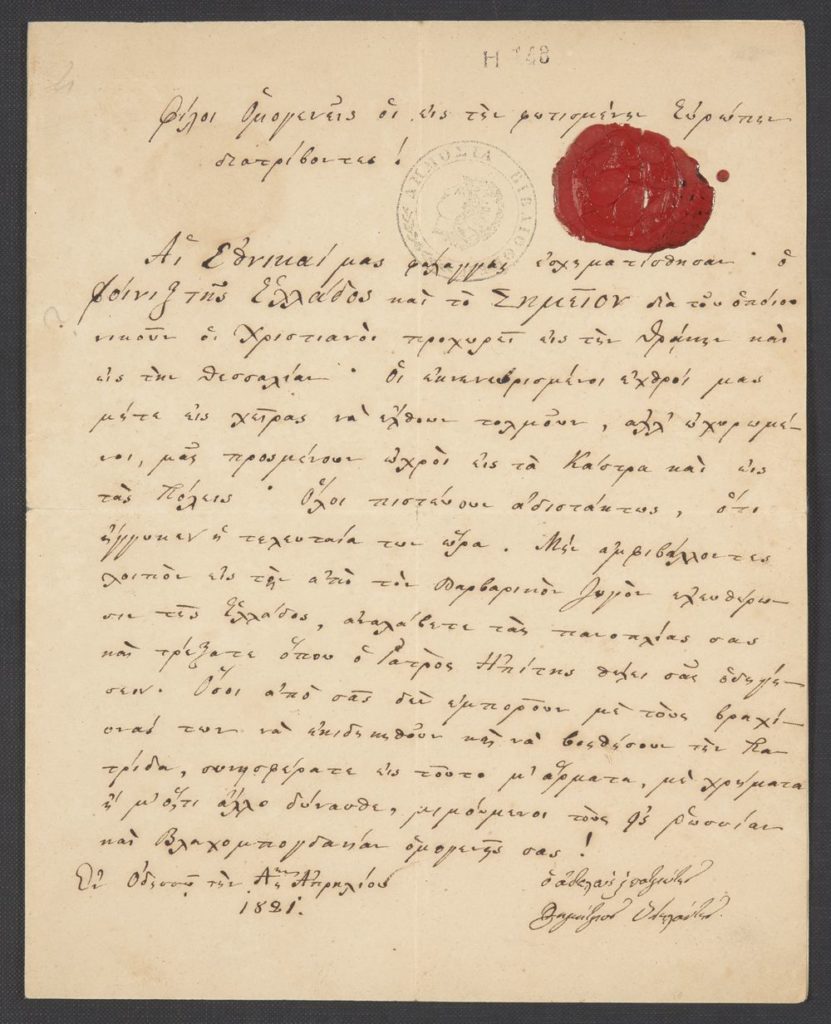 Η 148
Φίλοι Ὁμογενεῖς οἱ εἰς τὴν φωτισμένην Εὐρώπην
διατρίβοντες!
ΔΗΜΟΣΙΑ ΒΙΒΛΙΟΘ
Αἱ Ἐθνικαί μας φάλαγγες ἐσχηματίσθησαν · ὁ
φοίνιξ τῆς Ἑλλάδος καὶ τὸ Σημεῖον διὰ τοῦ ὁποίου
νικοῦν οἱ Χριστιανοὶ προχωρεῖ εἰς τὴν Θράκην καὶ
εἰς τὴν Θεσσαλίαν · Οἱ ἐκνενευρισμένοι ἐχθροί μας
μήτε εἰς χεῖρας νὰ ἔλθουν τολμοῦν, ἀλλ' ὠχυρωμέ-
νοι, μᾶς προσμένουν ὠχροὶ εἰς τὰ Κάστρα καὶ εἰς
τὰς Πόλεις · Ὅλοι πιστεύουν ἀδιστάκτως, ὅτι
ἤγγικεν ἡ τελευταία των ὥρα. Μὴν ἀμφιβάλλοντες
λοιπὸν εἰς τὴν ἀπὸ τὸν Βαρβαρικὸν ζυγὸν ἐλευθέρω-
σιν τῆς Ἑλλάδος, ἀναλάβετε τὰς πανοπλίας σας
καὶ τρέξατε ὅπου ὁ Ἰατρὸς Ἠπίτης θέλει σᾶς ὁδηγή-
σειν. Ὅσοι ἀπὸ σᾶς δὲν ἐμποροῦν μὲ τοὺς βραχί-
ονάς των νὰ ἐκδικηθοῦν καὶ νὰ βοηθήσουν τὴν Πα-
τρίδα, συνησφέρατε εἰς τοῦτο μ' ἄρματα, μὲ χρήματα
ἢ μ' ὅ,τι ἄλλο δύνασθε, μιμούμενοι τοὺς εἰς Ῥωσσίαν
καὶ Βλαχομπογδανίαν ὁμογενεῖς σας!
Ἐν Ὀδεσσῷ τὴν Αην Ἀπρηλίου
1821.